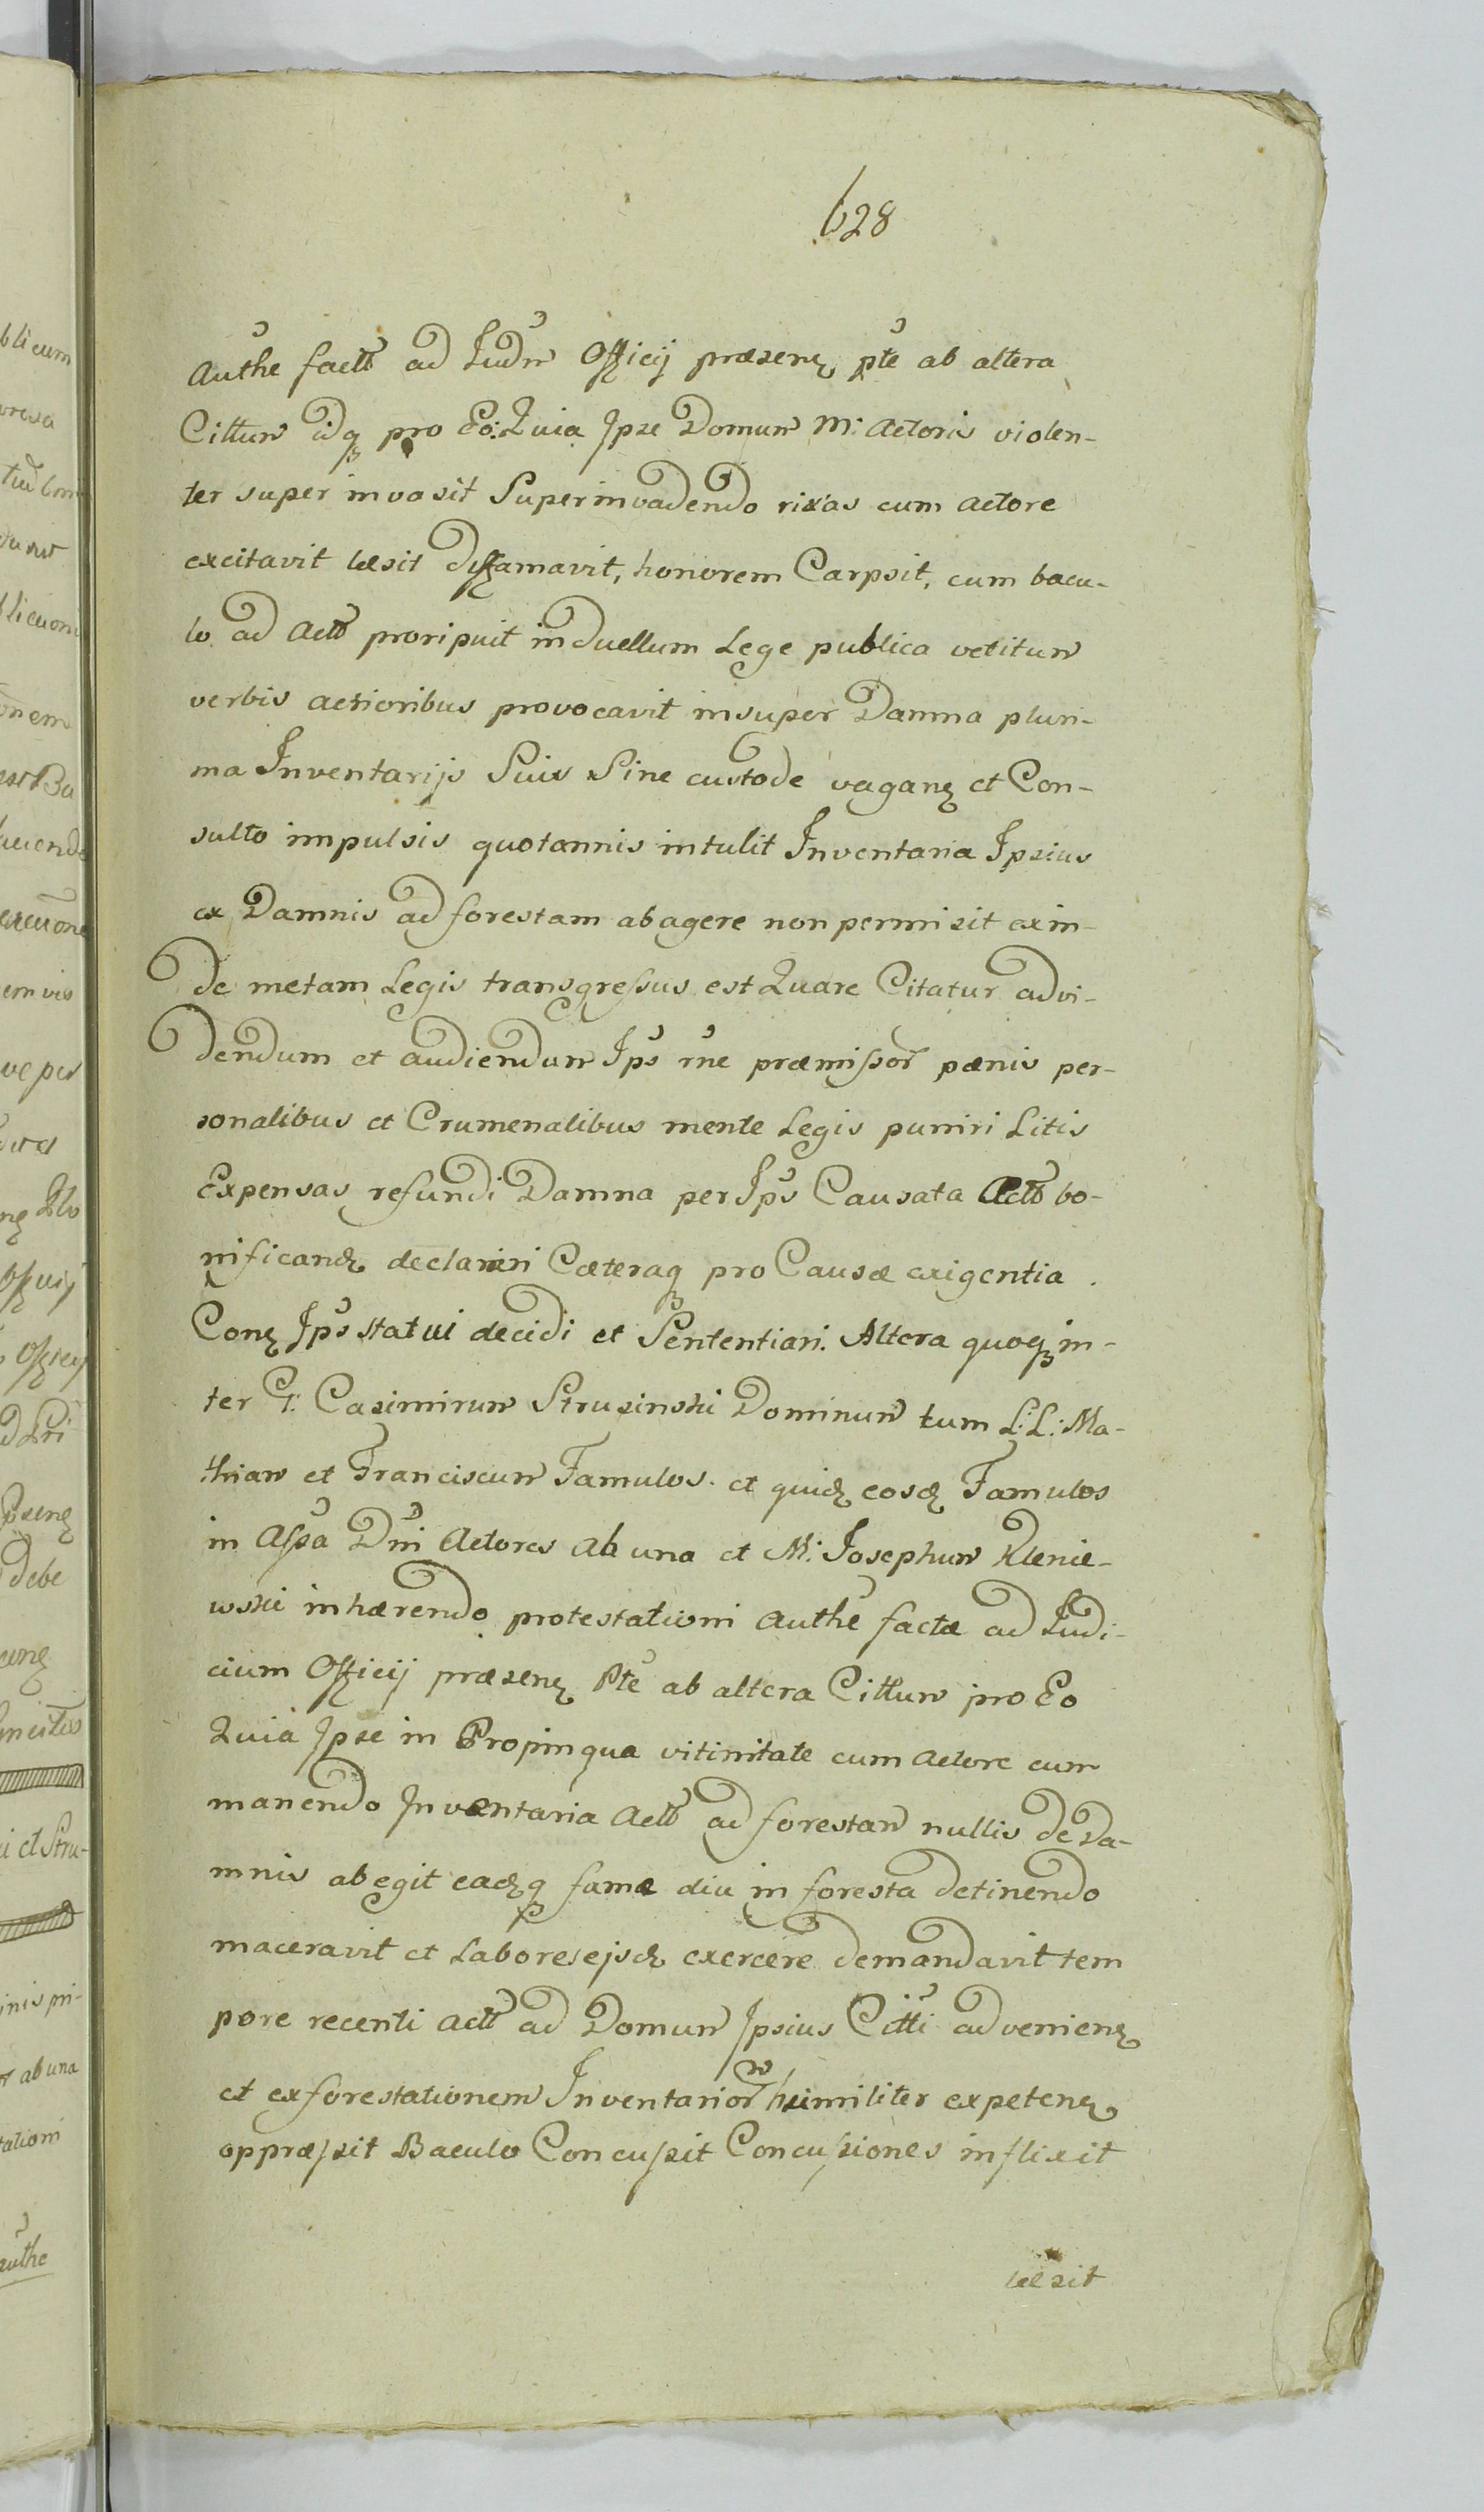 628
Authe factæ ad Judm Officij præsenꝫ pte ab altera
Cittum idqꝫ pro Eo: Quia Ipse Domum M: Actoris violen-
ter super invasit Superinvadendo rixas cum Actore
excitavit læsit diffamavit, honorem Carpsit, cum bacu-
lo ad Act̃ proripuit in duellum Lege publica vetitum
verbis actioribus provocavit insuper Damna pluri-
ma Inventarijs Suis Sine custode vaganꝫ et Con-
sulto impulsis quotannis intulit Inventaria Ipsius
ex Damnis ad forestam abagere non permisit exin-
de metam Legis transgressus est Quare Citatur ad vi-
dendum et audiendum Ips rne præmissor pænis per-
sonalibus et Crumenalibus mente Legis puniri Litis
Expensas refundi Damna per Ips Causata Act̃ bo-
nificandꝫ declarari Cæteraqꝫ pro Causæ exigentia.
Conꝫ Ips statui decidi et Sententiari. Altera quoqꝫ in-
ter G: Casimirum Strusinski Dominum tum L: L: Ma-
thiam et Franciscum Famulos. et quidꝫ eosdꝫ Famulos
in Assa Dni Actores ab una et M: Josephum Klenie-
wski inhærendo protestationi Authe factæ ad Judi-
cium Officij præsenꝫ Pte ab altera Cittum pro Eo
Quia Ipse in Propinqua vitinitate cum Actore cum
manendo Inventaria Act̃ ad forestam nullis de Da-
mnis abegit eadꝫqꝫ fame diu in foresta detinendo
maceravit et Labores ejsdꝫ exercere demandavit tem
pore recenti Act̃ ad Domum Ipsius Citti advenienꝫ
et exforestationem Inventarior humiliter expetenꝫ
oppræssit Baculo Concussit Concussiones inflixit
læsit